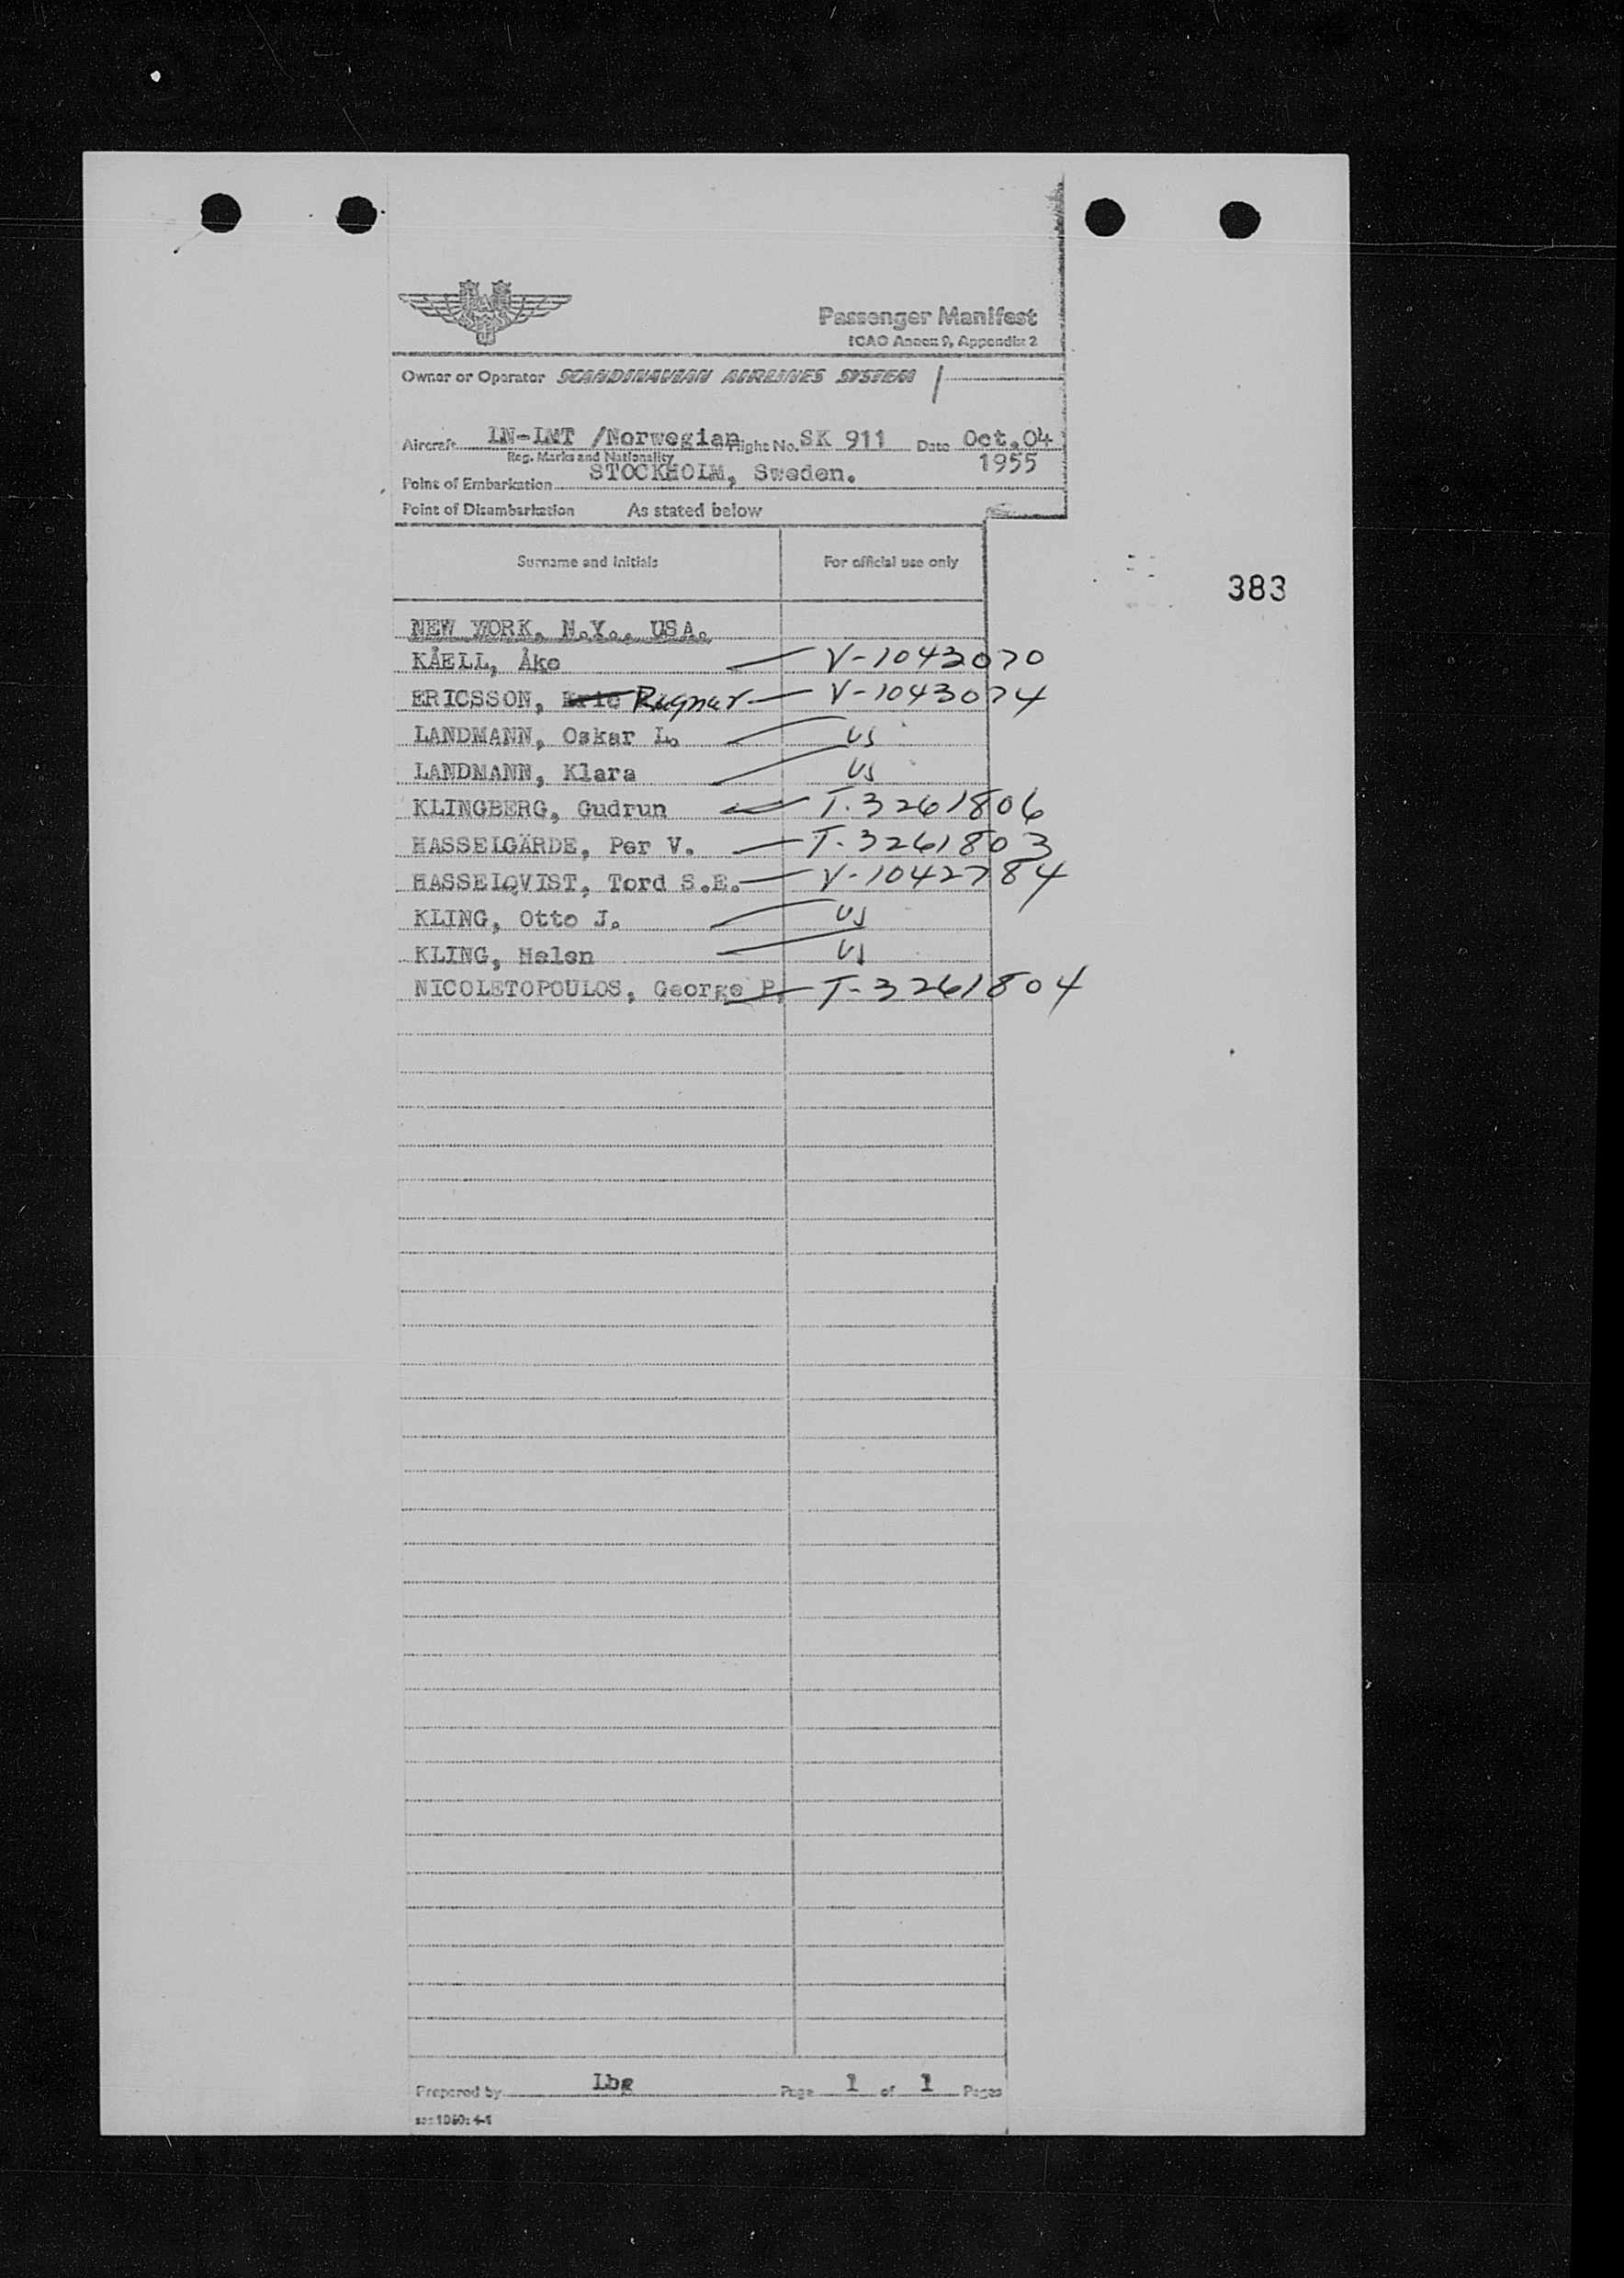 Passenger Manifest
ICAO Annex 9, Appendix 2
Owner or Operator SCANDINAVIAN AIRLINES SYSTEM
Aircraft LN-LMT /Norwegian Flight No. SK 911 Date Oct.04
Reg. Marks and Nationality 1955
Point of Embarkation STOCKHOLM, Sweden.
Point of Disembarkation As stated below
Surname and initials For official use only
383
NEW YORK, N.Y., USA.
KÅELL, Åke V-1043070
ERICSSON, Eric Ragnar V-1043074
LANDMANN, Oskar L. US
LANDMANN, Klara US
KLINGBERG, Gudrun T-3261806
HASSELGÄRDE, Per V. T-3261803
HASSELQVIST, Tord S.E. V-1042784
KLING, Otto J. US
KLING, Helen US
NICOLETOPOULOS, George P. T-3261804
Prepared by Lbg Page 1 of 1 Pages